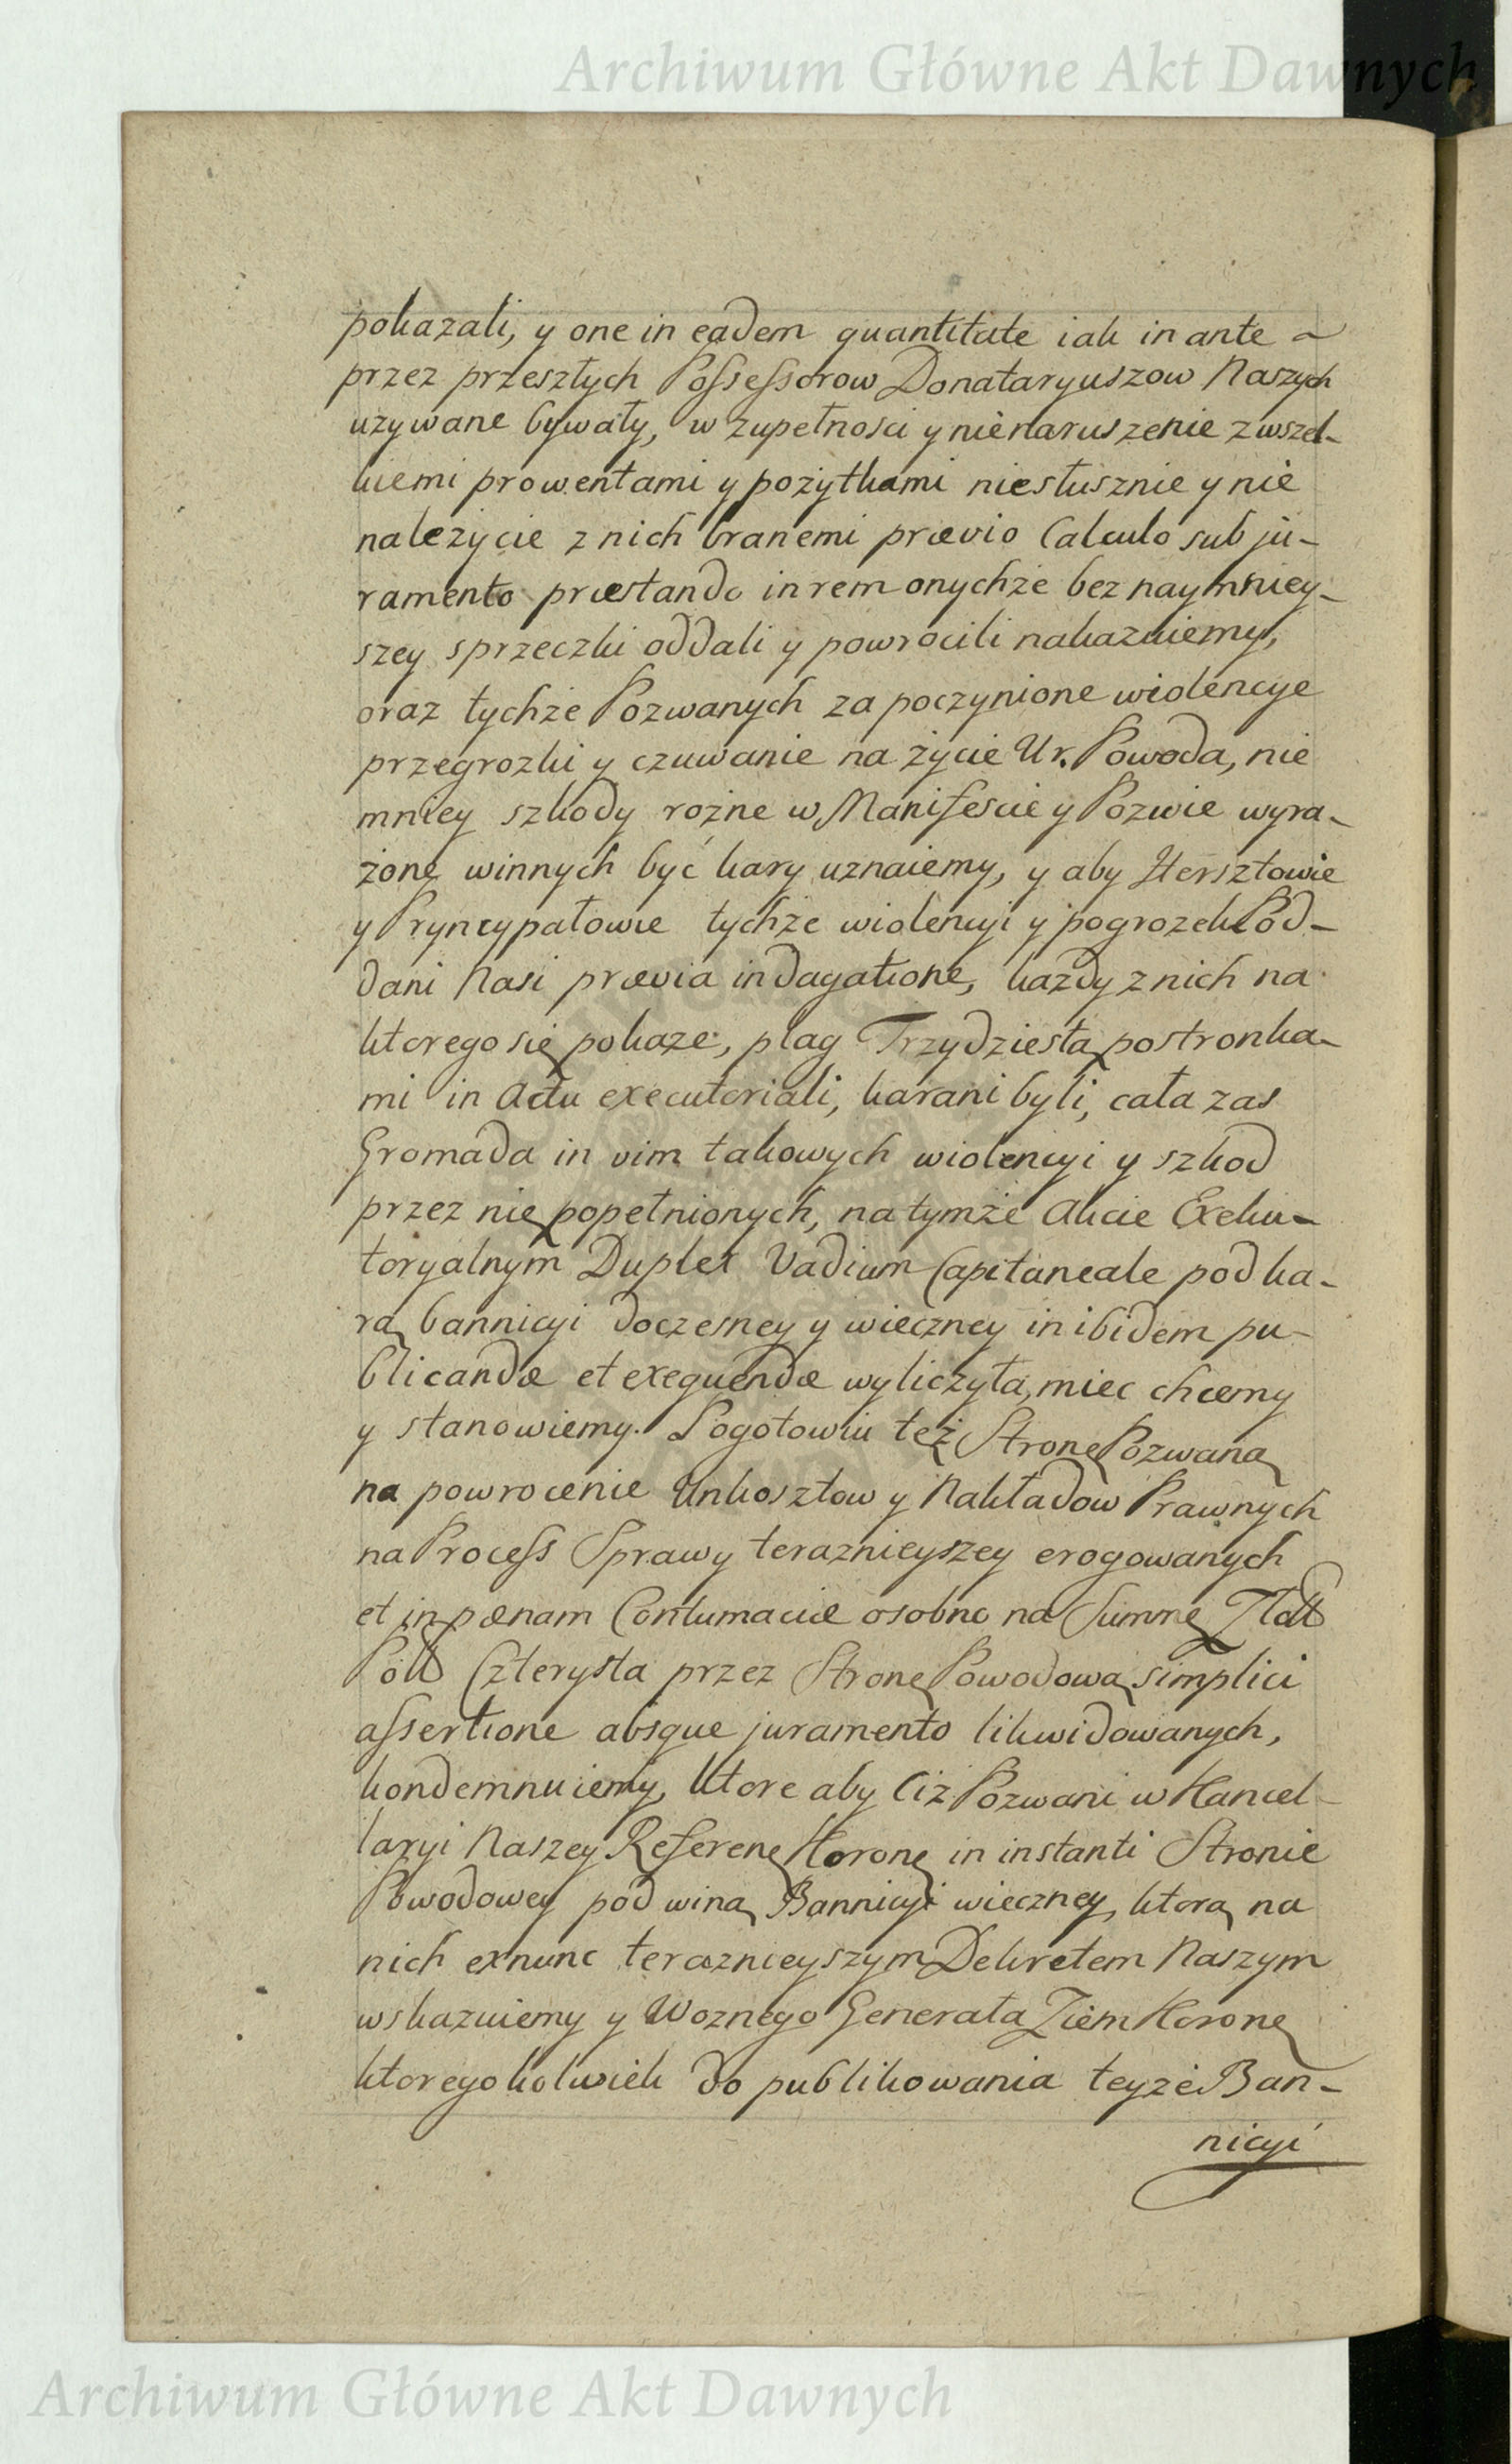 Archiwum Główne Akt Dawnych
pokazali, y one in eadem quantitate iak in ante
przez przeszłych Possessorow Donataryuszow Naszych
uzywane bywały, w zupełnosci y nienaruszenie z wszel-
kiemi prowentami y pozytkami niesłusznie y nie
nalezycie z nich branemi prævio Calculo sub ju-
ramento præstando in rem onychże bez naymniey-
szey sprzeczki oddali y powrocili nakazuiemy,
oraz tychże Pozwanych za poczynione wiolencye
przegrozki y czuwanie na życie Ur. Powoda, nie
mniey szkody rożne w Manifescie y Pozwie wyra-
żone winnych być kary uznaiemy, y aby Hersztowie
y Pryncypałowie tychże wiolencyi y pogrozek Pod-
dani Nasi prævia indagatione, kazdy z nich na
ktorego się pokaze, plag Trzydziestą postronka-
mi in Actu executoriali, karani byli, cała zas
Gromada in vim takowych wiolencyi y szkod
przez nię popełnionych, na tymże Akcie Exeku-
toryalnym Duplex Vadium Capitaneale pod ka-
rą bannicyi doczesney y wieczney inibidem pu-
blicandæ et exequendæ wyliczyła, miec chcemy
y stanowiemy. Pogotowiu też Stronę Pozwaną
na powrocenie Unkosztow y Nakładow Prawnych
na Process Sprawy teraznieyszey erogowanych
et in pænam Contumaciæ osobno na Summę Złott
Poll Czterysta przez Stronę Powodową simplici
assertione absque juramento likwidowanych,
kondemnuiemy, ktore aby Ciż Pozwani w Kancel-
laryi Naszey Referen Koron in instanti Stronie
Powodowey pod winą Bannicyi wieczney, ktorą na
nich exnunc teraznieyszym Dekretem Naszym
wskazuiemy y Woznego Generała Ziem Koron
ktoregokolwiek do publikowania teyże Ban-
nicyi
Archiwum Główne Akt Dawnych